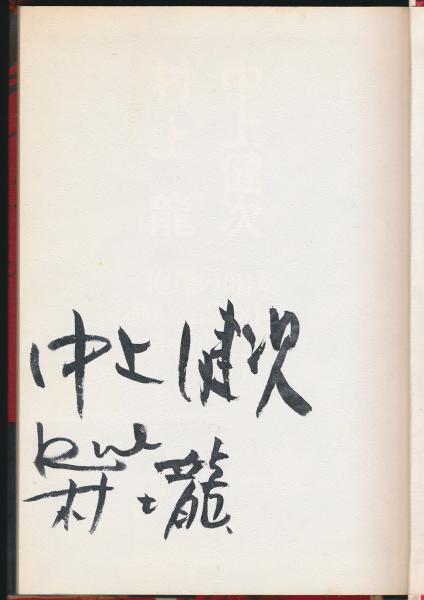 中上健次
Ryu
村上龍
中上健次
村上龍